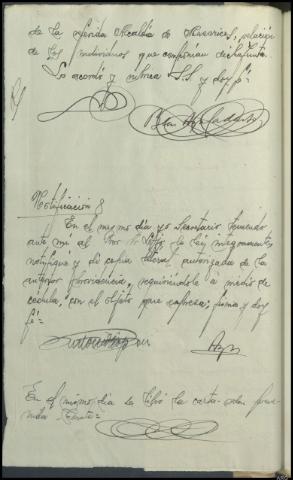 de la referida Alcaldia de Navarrés, relación
de los individuos que conforman dicha Junta.
Lo acordó y rubrica S.S. y doy fé:
Notificación
En el mismo dia yo Secretario teniendo
ante mi al Sor. le lei integramente
notifiqué y di copia literal autorizada de la
anterior providencia, requiriéndole a medio de
cedula, con el objeto que expresa; firma y doy
fé:
En el mismo dia se libró la carta orden